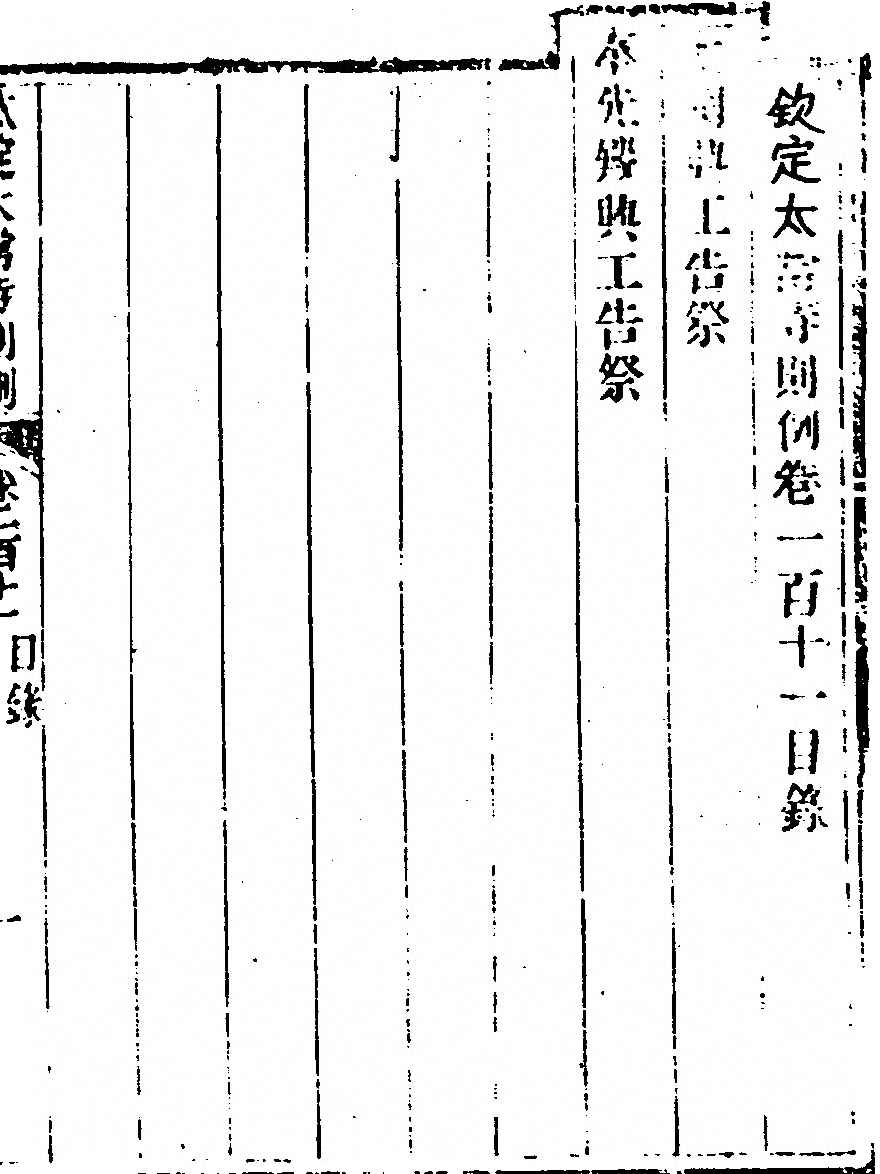 欽定太常寺則例卷一百十一目錄
興工告祭
奉先殿興工告祭
太常寺則例 卷一百十一 目錄 一